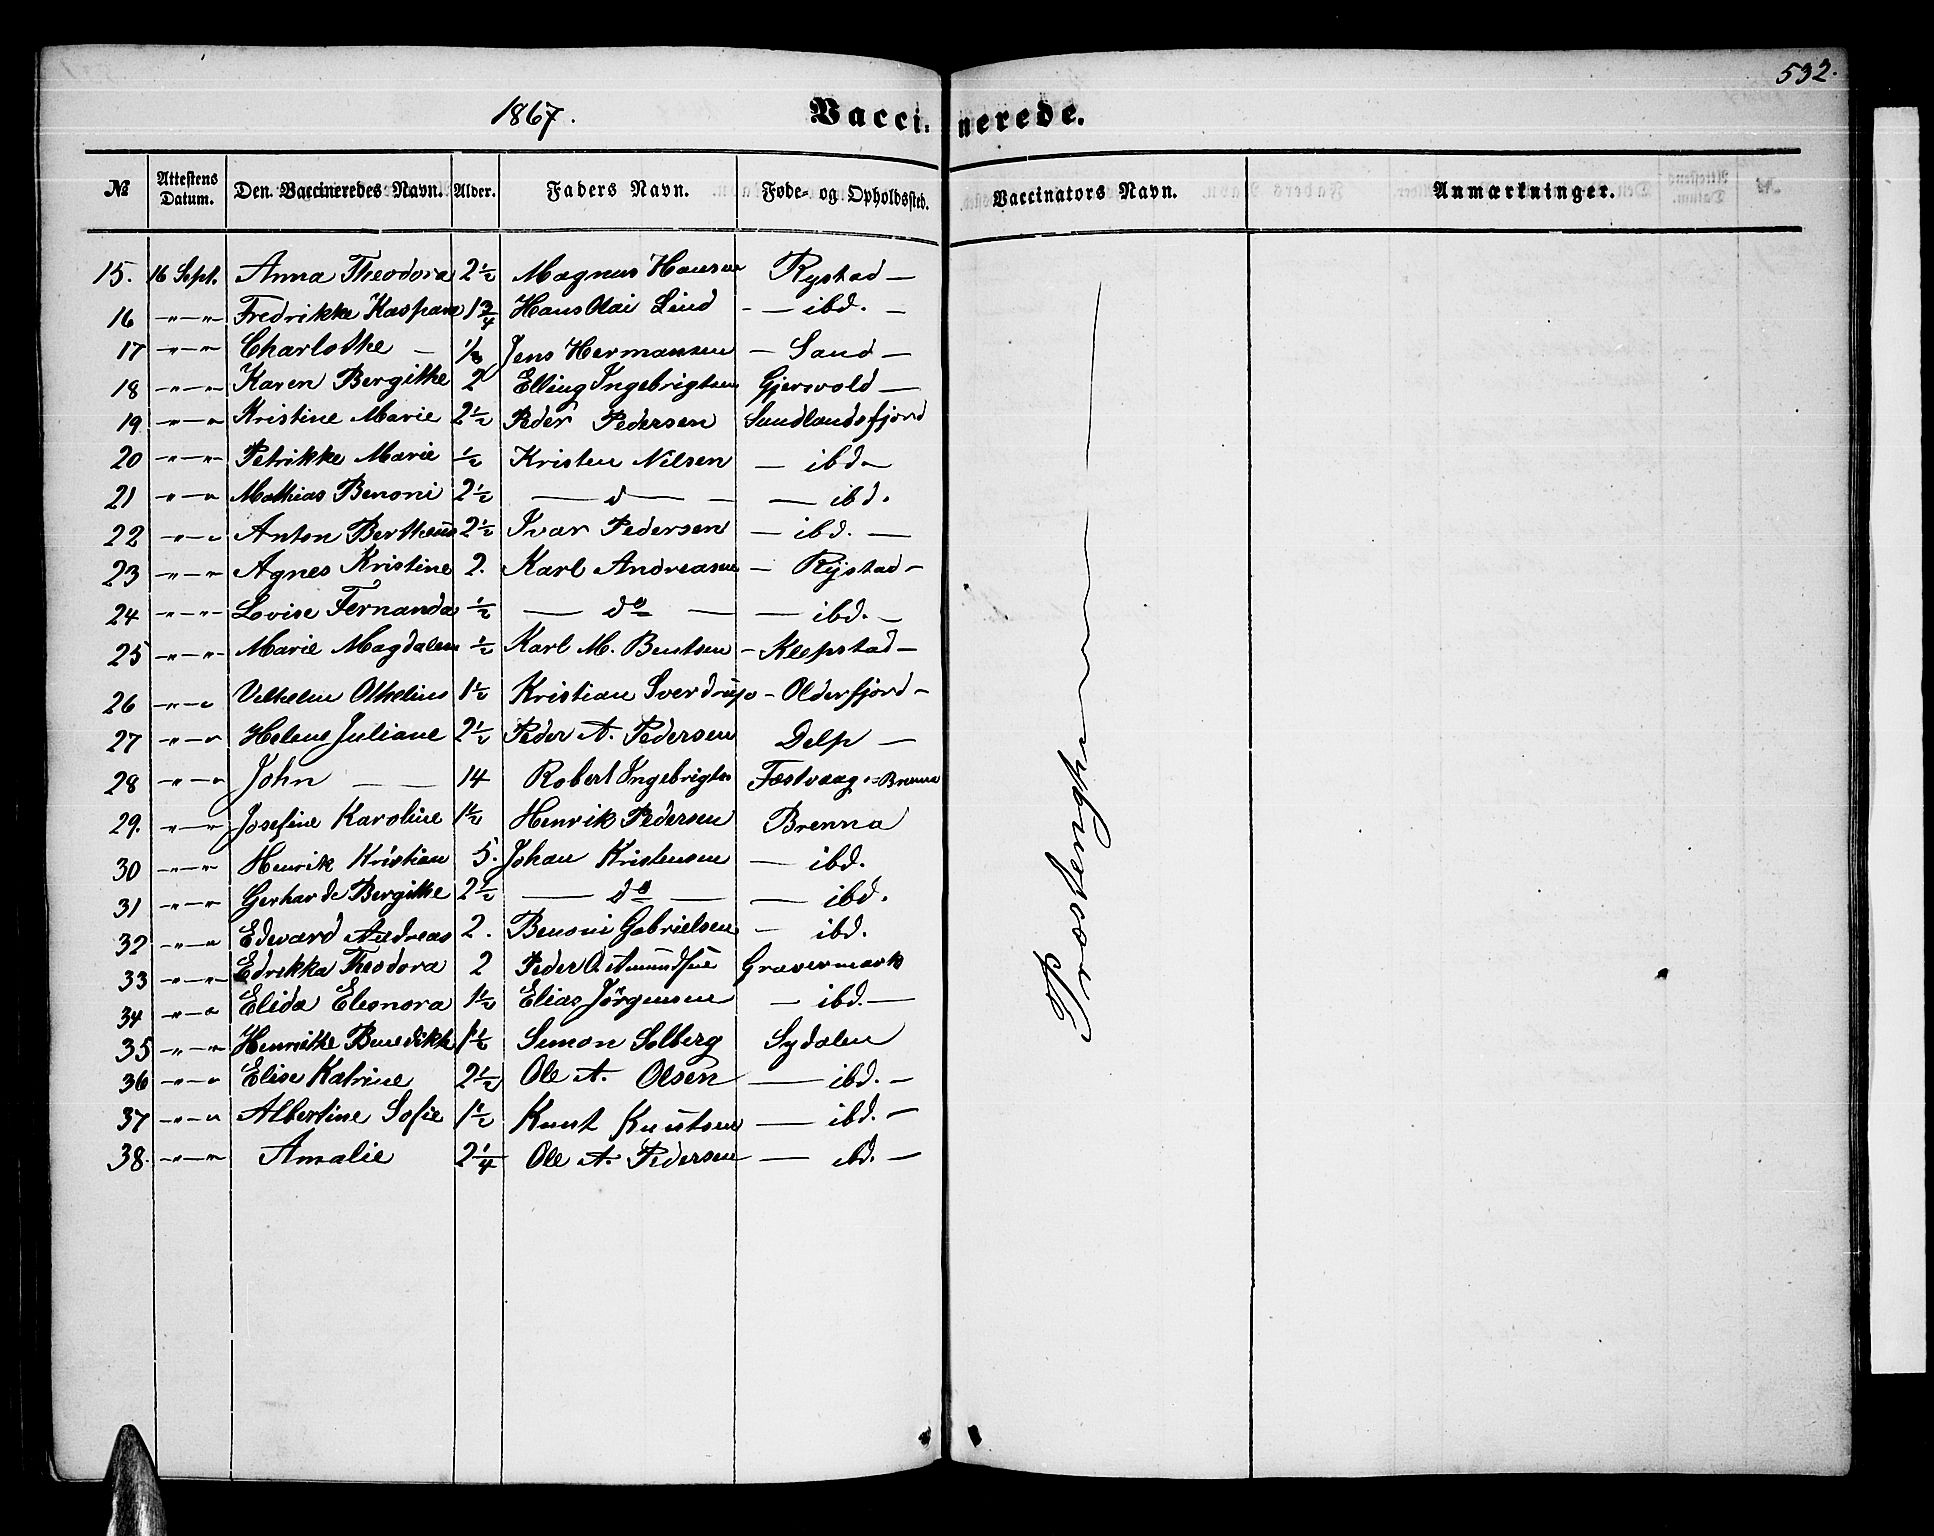 532.
1867. Vaccinerede.
№ Attestens Datum. Den Vaccineredes Navn. Alder. Faders Navn. Føde- og Opholdssted. Vaccinators Navn. Anmærkninger.
15. 16 Sept. Anna Theodora 2 1/2 Magnus Hansen Rystad —
16 —"—" Fredrikke Kaspara 1 3/4 Hans Olai Lind - — ibd. —
17 —"—" Charlothe — 1/3 Jens Hermansen — Sand —
18 —"—" Karen Bergithe 2 Elling Ingebrigtsen Gjersvold —
19. —"—" Kristine Marie 2 1/2 Peder Pedersen Sundlandsfjord
20 —"—" Petrikke Marie 1/2 Kristen Nilsen — ibd —
21 —"—" Mathias Benoni 2 1/2 — d — — — ibd.
22 —"—" Anton Bertheus 2 1/2 Ivar Pedersen — ibd. —
23 —"—" Agnes Kristine 2. Karl Andreasen — Rystad —
24 —"—" Lovise Fernanda 1/2 — do — — ibd. —
25 —"—" Marie Magdalena 1/2 Karl M. Bentsen — Klepstad —
26 —"—" Vilhelm Othelius 1 1/2 Kristian Sverdrup — Olderfjord —
27 —"—" Helene Juliane 2 1/2 Peder A. Pedersen Delp —
28 —"—" John — — 14 Robert Ingebrigts Fæstvaag - Brenna
29. —"—" Josefine Karoline 1 1/2 Henrik Pedersen Brenna
30 —"—" Henrik Kristian 5. Johan Kristensen — ibd.
31 —"—" Gerharde Bergithe 2 1/2 — do — — ibd.
32 —"—" Edevard Andreas 2. Benoni Gabrielsen — ibd.
33 —"—" Edrekka Theodora 2 Peder Amundsen Gravermark
34 —"—" Elida Eleonora 1 1/2 Elias Jörgensen — ibd. —
35 —"—" Henrikke Benedikte 1 1/2 Simon Solberg Sydalen
36 —"—" Elise Katrine 2 1/2 Ole A. Olsen — ibd. —
37 —"—" Albertine Sofie 1 1/2 Knut Knutsen — ibd. —
38. —"—" Amalie 2 1/4 Ole A. Pedersen — ibd. —